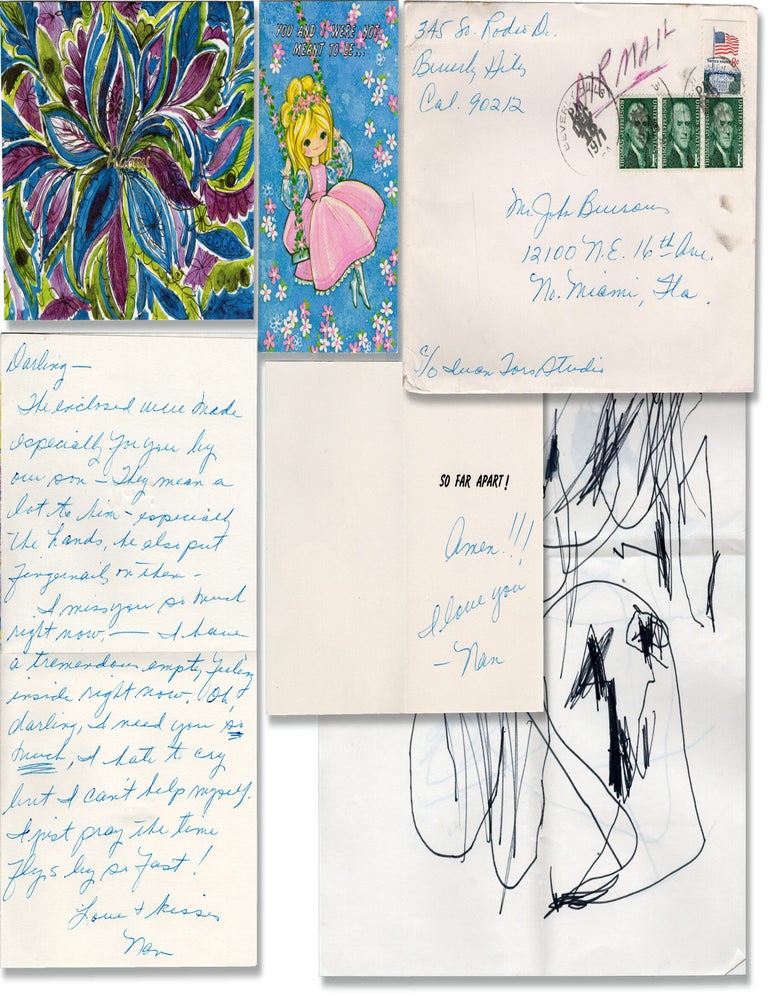 YOU AND I WERE NOT
MEANT TO BE...
345 So. Rodeo Dr.
Beverly Hills
Cal. 90212
AIR MAIL
BEVERLY HILLS
1971
UNITED STATES
UNITED STATES
UNITED STATES
Mr. John Burrows
12100 N.E. 16th Ave.
No. Miami, Fla.
c/o Ivan Tors Studio
Darling—
The enclosed were made
especially for you by
our son – They mean a
lot to him – especially
the hands, he also put
fingernails on them –
I miss you so much
right now, — I have
a tremendous empty feeling
inside right now. Oh,
darling, I need you so
much, I hate to cry
but I can't help myself.
I just pray the time
flys by so fast!
Love + kisses
Nan
SO FAR APART!
Amen!!!
I love you
– Nan